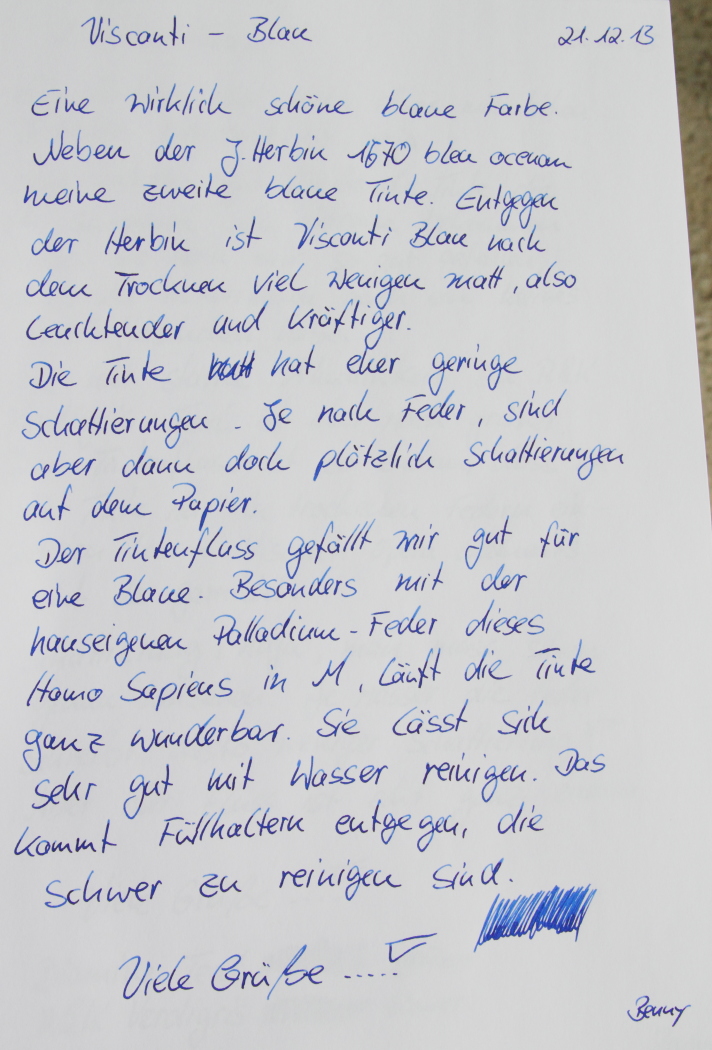 Visconti - Blau 21.12.13
Eine wirklich schöne blaue Farbe.
Neben der J. Herbin 1670 bleu ocenan
meine zweite blaue Tinte. Entgegen
der Herbin ist Visconti Blau nach
dem Trocknen viel weniger matt, also
leuchtender und kräftiger.
Die Tinte hat eher geringe
Schattierungen. Je nach Feder, sind
aber dann doch plötzlich Schattierungen
auf dem Papier.
Der Tintenfluss gefällt mir gut für
eine Blaue. Besonders mit der
hauseigenen Palladium-Feder dieses
Homo Sapiens in M, läuft die Tinte
ganz wunderbar. Sie lässt sich
sehr gut mit Wasser reinigen. Das
kommt Füllhaltern entgegen, die
schwer zu reinigen sind.
Viele Grüße .....
Benny